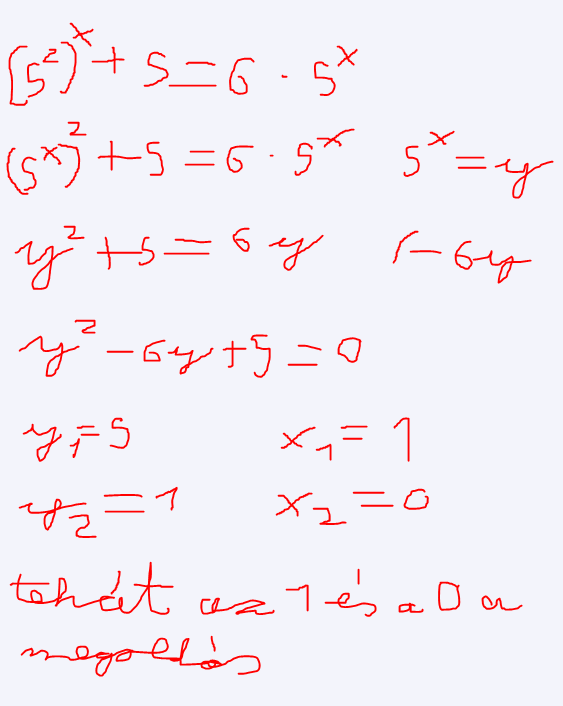 (5²)ˣ + 5 = 6 · 5ˣ
(5ˣ)² + 5 = 6 · 5ˣ 5ˣ = y
y² + 5 = 6y /-6y
y² - 6y + 5 = 0
y₁ = 5 x₁ = 1
y₂ = 1 x₂ = 0
tehát az 1 és a 0 a
megoldás